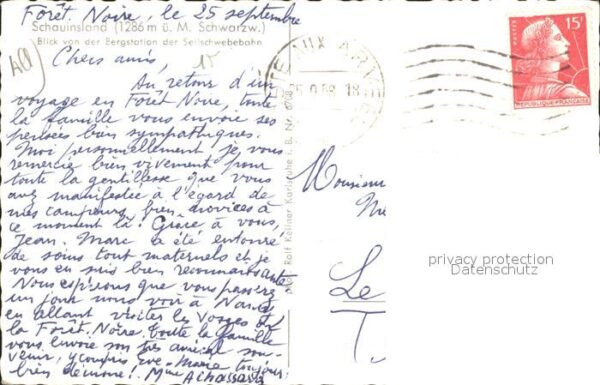 Forêt. Noire, le 25 septembre
Schauinsland (1286 m ü. M. Schwarzw.)
Blick von der Bergstation der Seilschwebebahn
Chers amis,
Au retour d'un
voyage en Forêt Noire, toute
la famille vous envoie ses
pensées bien sympathiques.
Moi personnellement je vous
remercie bien vivement pour
toute la gentillesse que vous
avez manifestée à l'égard de
mes campeurs bien novices à
ce moment là! Grâce à vous,
Jean. Marc a été entouré
de soins tout maternels et je
vous en suis bien reconnaissante
Nous espérons que vous passerez
un jour nous voir à Nancy
en allant visiter les Vosges et
la Forêt. Noire. toute la famille
vous envoie son très amical sou-
venir, y compris Eve-Marie toujours
bien
Rolf Kellner Karlsruhe i. B. Nr.
15F
POSTES
REPUBLIQUE FRANÇAISE
Monsieur
Me
Le
T.
privacy protection
Datenschutz